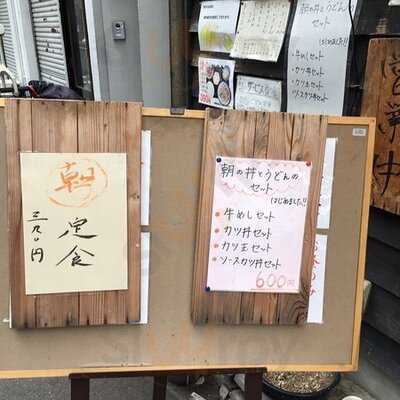 朝
定食
三九〇円
朝の丼とうどんの
セット
はじめました!!
・牛めしセット
・カツ丼セット
・カツ玉セット
・ソースカツ丼セット
600円
朝の丼とうどんの
セット
はじめました!!
・牛めしセット
・カツ丼セット
・カツ玉セット
・ソースカツ丼セット
営業中